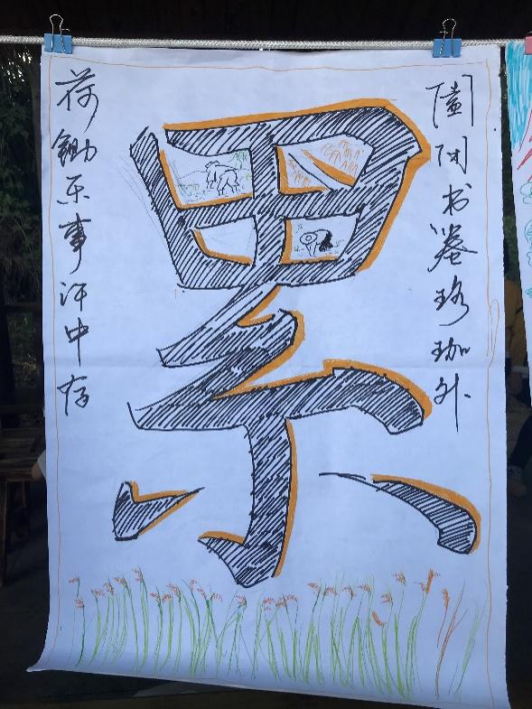 闭书卷珞珈外
累
荷锄乐事汗中存